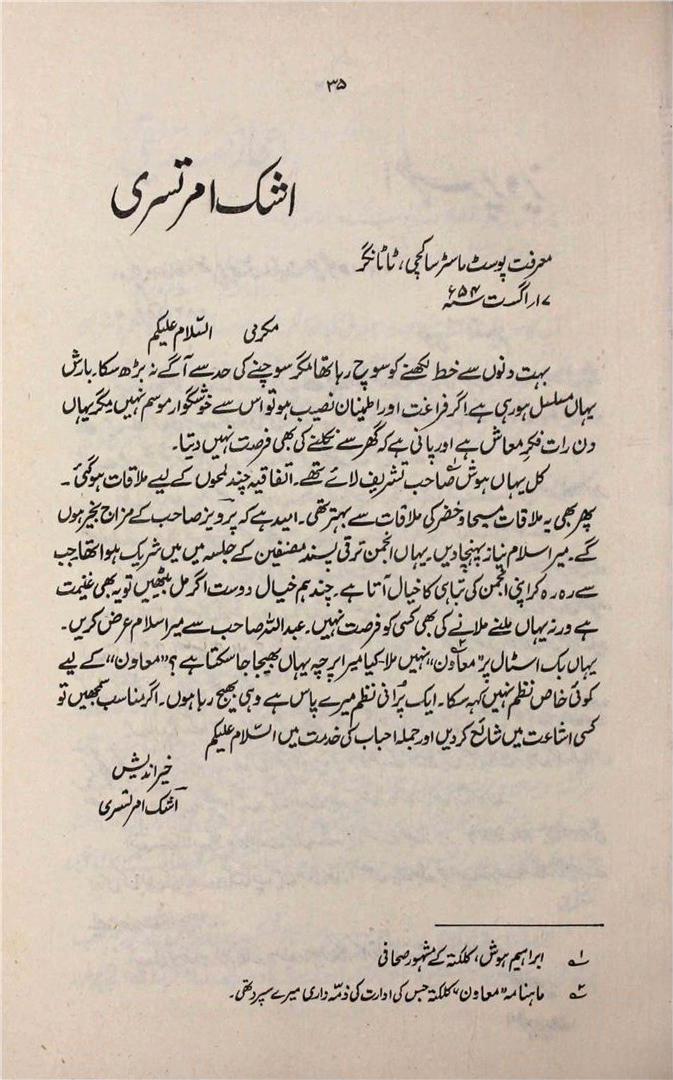 ۳۵
اشک امرتسری
معرفت پوسٹ ماسٹر ساکچی، ٹاٹانگر
۱۷ اگست ۵۴ء
مکرمی السّلام علیکم
بہت دنوں سے خط لکھنے کو سوچ رہا تھا مگر سوچنے کی حد سے آگے نہ بڑھ سکا۔ بارش
یہاں مسلسل ہو رہی ہے اگر فراغت اور اطمینان نصیب ہو تو اس سے خوشگوار موسم نہیں مگر یہاں
دن رات فکرِ معاش ہے اور پانی ہے کہ گھر سے نکلنے کی بھی فرصت نہیں دیتا۔
کل یہاں ہوش۱ صاحب تشریف لائے تھے۔ اتفاقیہ چند لمحوں کے لیے ملاقات ہو گئی۔
پھر بھی یہ ملاقات مسیحا و خضر کی ملاقات سے بہتر تھی۔ امید ہے کہ پرویز صاحب کے مزاج بخیر ہوں
گے۔ میرا سلام نیاز پہنچا دیں۔ یہاں انجمن ترقی پسند مصنفین کے جلسہ میں میں شریک ہوا تھا جب
سے رہ رہ کر اپنی انجمن کی تباہی کا خیال آتا ہے۔ چند ہم خیال دوست اگر مل بیٹھیں تو یہ بھی غنیمت
ہے ورنہ یہاں ملنے ملانے کی بھی کسی کو فرصت نہیں۔ عبداللہ صاحب سے میرا سلام عرض کریں۔
یہاں بک اسٹال پر "معاون۲" نہیں ملا۔ کیا میرا پرچہ یہاں بھیجا جا سکتا ہے؟ "معاون" کے لیے
کوئی خاص نظم نہیں کہہ سکا۔ ایک پُرانی نظم میرے پاس ہے وہی بھیج رہا ہوں۔ اگر مناسب سمجھیں تو
کسی اشاعت میں شائع کر دیں اور جملہ احباب کی خدمت میں السّلام علیکم
خیر اندیش
اشک امرتسری
۱ ابراہیم ہوش، کلکتہ کے مشہور صحافی
۲ ماہنامہ "معاون" کلکتہ جس کی ادارت کی ذمّہ داری میرے سپرد تھی۔